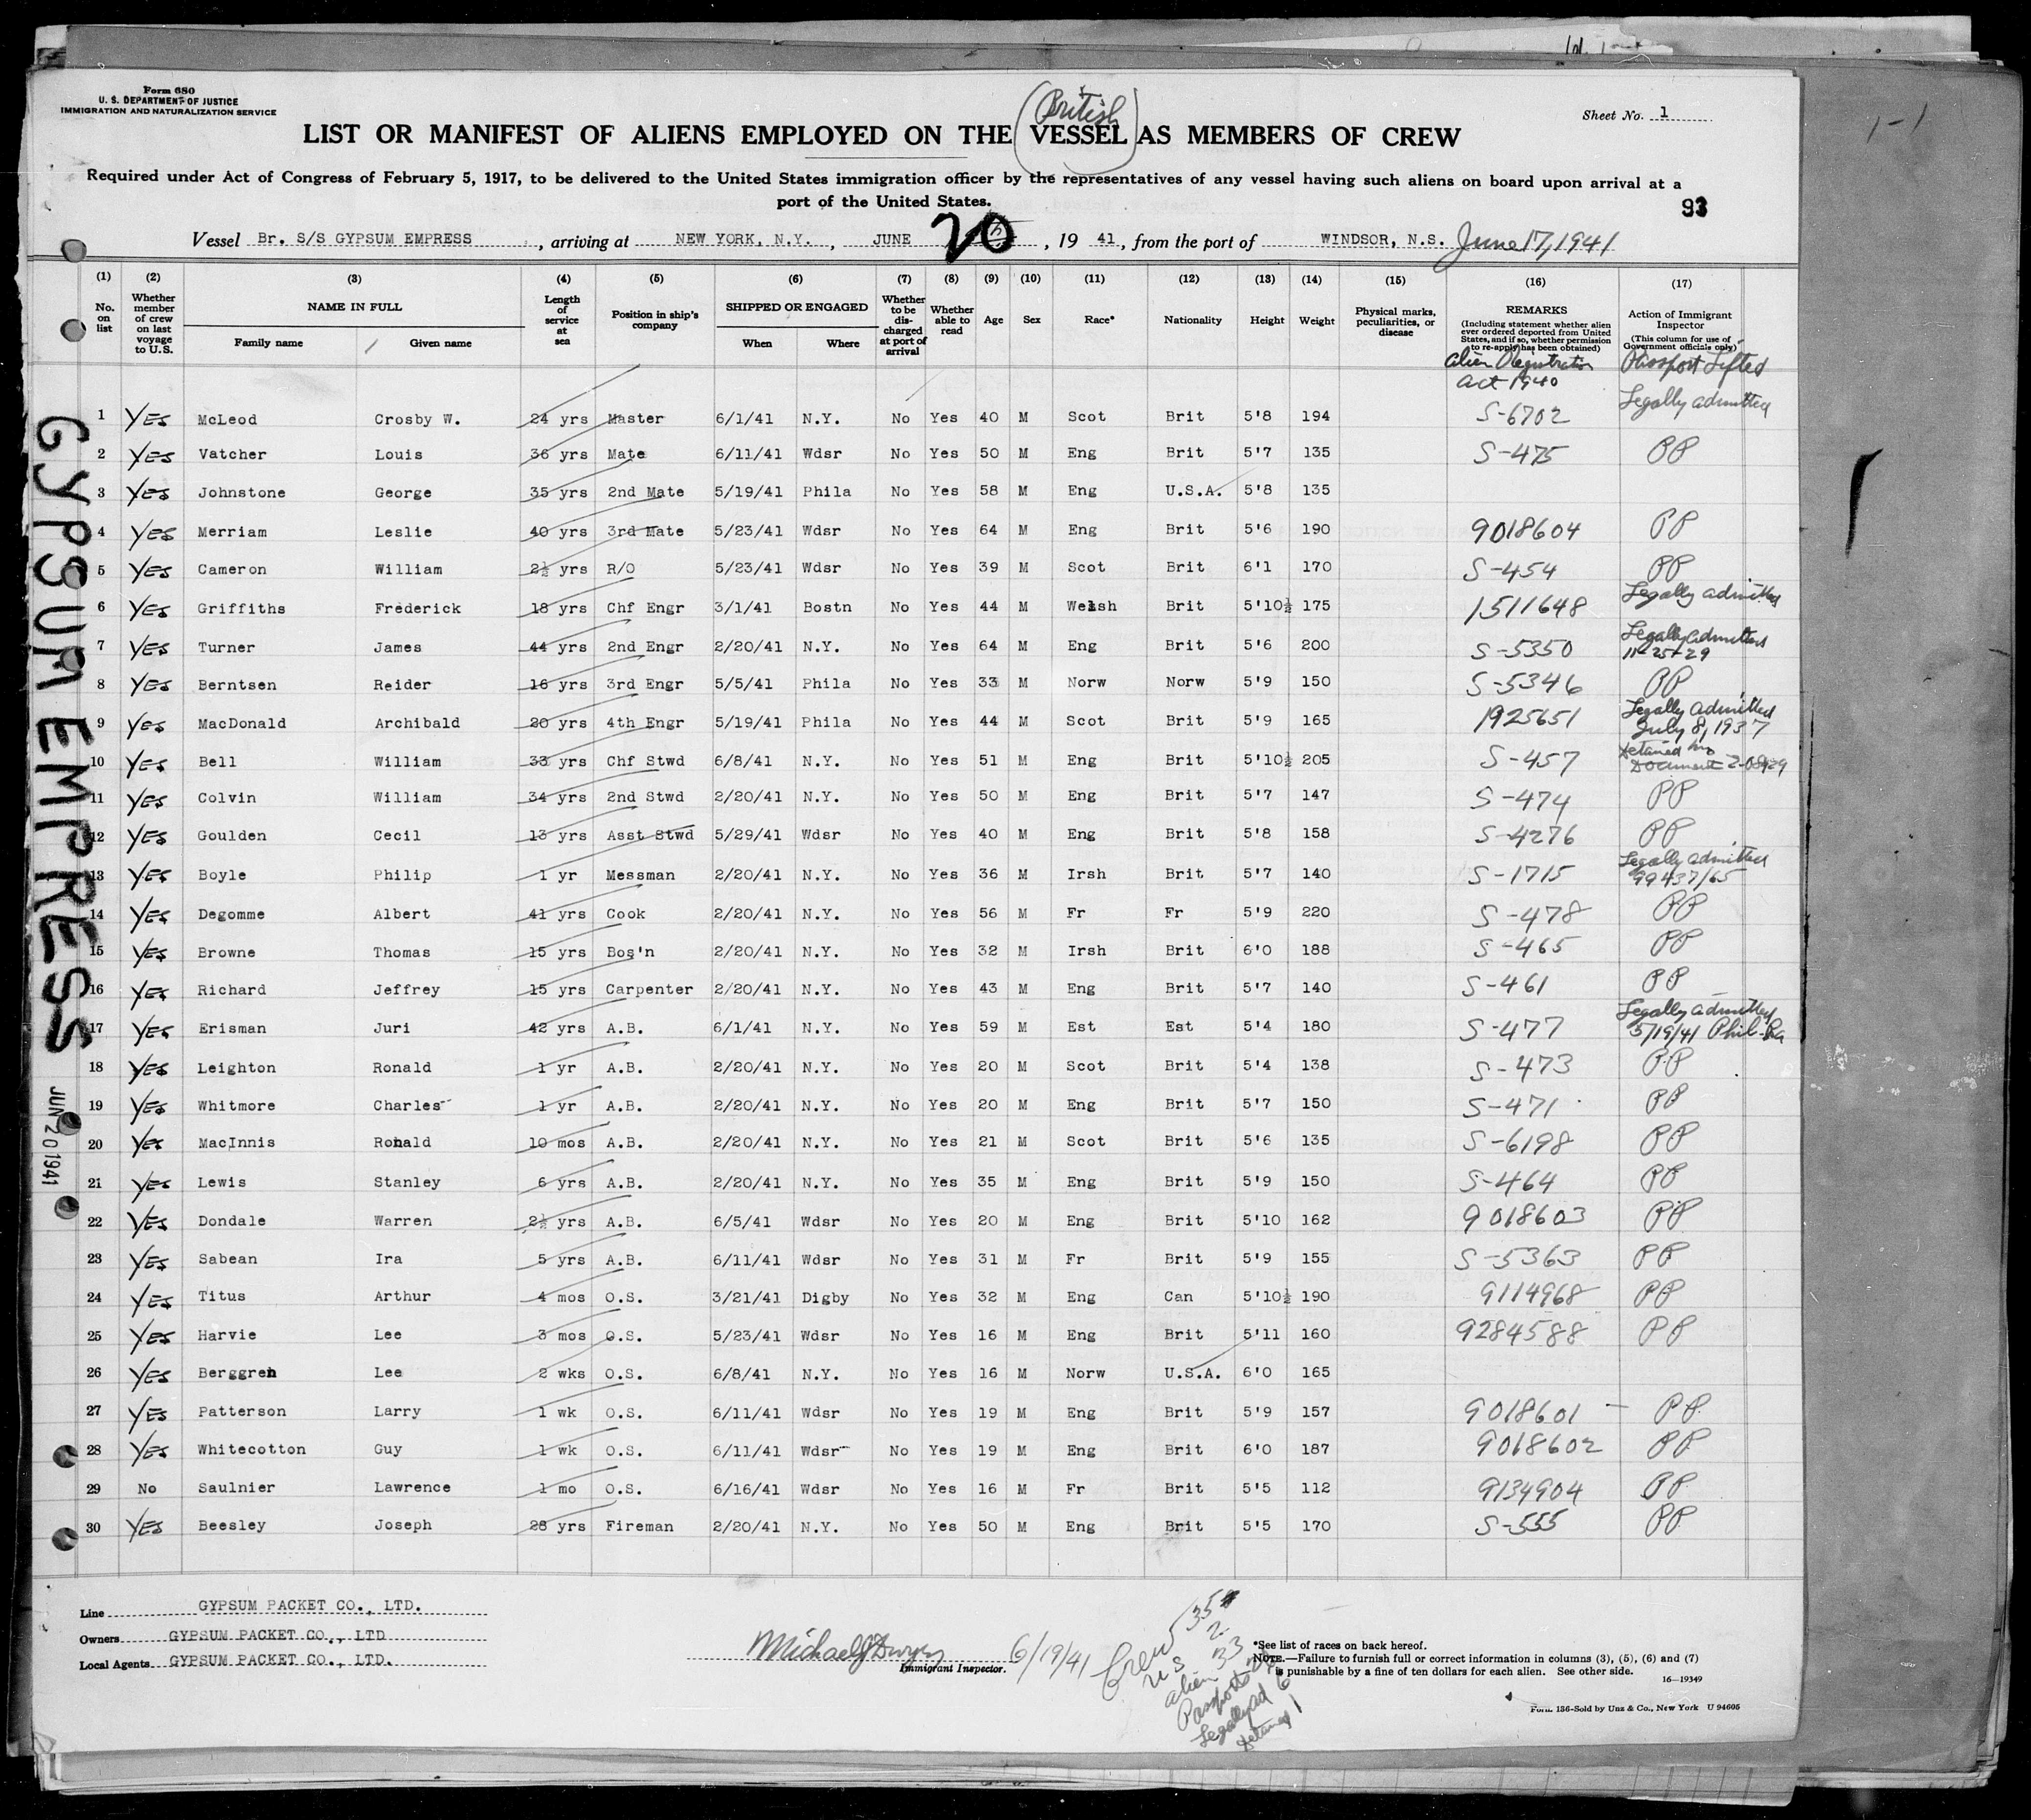 Form 680
U. S. DEPARTMENT OF JUSTICE
IMMIGRATION AND NATURALIZATION SERVICE
Sheet No. 1
1-1
(British)
LIST OR MANIFEST OF ALIENS EMPLOYED ON THE VESSEL AS MEMBERS OF CREW
Required under Act of Congress of February 5, 1917, to be delivered to the United States immigration officer by the representatives of any vessel having such aliens on board upon arrival at a
port of the United States.
93
Vessel Br. S/S GYPSUM EMPRESS, arriving at NEW YORK, N.Y., JUNE 20, 1941, from the port of WINDSOR, N.S. June 17, 1941
(1) No. on list (2) Whether member of crew on last voyage to U.S. (3) NAME IN FULL Family name Given name (4) Length of service at sea (5) Position in ship's company (6) SHIPPED OR ENGAGED When Where (7) Whether to be discharged at port of arrival (8) Whether able to read (9) Age (10) Sex (11) Race* (12) Nationality (13) Height (14) Weight (15) Physical marks, peculiarities, or disease (16) REMARKS (Including statement whether alien ever ordered deported from United States, and if so, whether permission to re-apply has been obtained) (17) Action of Immigrant Inspector (This column for use of Government officials only)
Alien Registration Act 1940 Passport Lifted
1 YES McLeod Crosby W. 24 yrs Master 6/1/41 N.Y. No Yes 40 M Scot Brit 5'8 194 S-6702 Legally admitted
2 YES Vatcher Louis 36 yrs Mate 6/11/41 Wdsr No Yes 50 M Eng Brit 5'7 135 S-475 PP
3 YES Johnstone George 35 yrs 2nd Mate 5/19/41 Phila No Yes 58 M Eng U.S.A. 5'8 135
4 YES Merriam Leslie 40 yrs 3rd Mate 5/23/41 Wdsr No Yes 64 M Eng Brit 5'6 190 9018604 PP
5 YES Cameron William 2½ yrs R/O 5/23/41 Wdsr No Yes 39 M Scot Brit 6'1 170 S-454 PP
6 YES Griffiths Frederick 18 yrs Chf Engr 3/1/41 Bostn No Yes 44 M Welsh Brit 5'10½ 175 1511648 Legally admitted
7 YES Turner James 44 yrs 2nd Engr 2/20/41 N.Y. No Yes 64 M Eng Brit 5'6 200 S-5350 Legally admitted 11-25-29
8 YES Berntsen Reider 16 yrs 3rd Engr 5/5/41 Phila No Yes 33 M Norw Norw 5'9 150 S-5346 PP
9 YES MacDonald Archibald 20 yrs 4th Engr 5/19/41 Phila No Yes 44 M Scot Brit 5'9 165 1925651 Legally admitted July 8, 1937
10 YES Bell William 33 yrs Chf Stwd 6/8/41 N.Y. No Yes 51 M Eng Brit 5'10½ 205 S-457 detained no Document
11 YES Colvin William 34 yrs 2nd Stwd 2/20/41 N.Y. No Yes 50 M Eng Brit 5'7 147 S-474 PP
12 YES Goulden Cecil 13 yrs Asst Stwd 5/29/41 Wdsr No Yes 40 M Eng Brit 5'8 158 S-4276 PP
13 YES Boyle Philip 1 yr Messman 2/20/41 N.Y. No Yes 36 M Irsh Brit 5'7 140 S-1715 Legally admitted 99437/65
14 YES Degomme Albert 41 yrs Cook 2/20/41 N.Y. No Yes 56 M Fr Fr 5'9 220 S-478 PP
15 YES Browne Thomas 15 yrs Bos'n 2/20/41 N.Y. No Yes 32 M Irsh Brit 6'0 188 S-465 PP
16 YES Richard Jeffrey 15 yrs Carpenter 2/20/41 N.Y. No Yes 43 M Eng Brit 5'7 140 S-461 PP
17 YES Erisman Juri 42 yrs A.B. 6/1/41 N.Y. No Yes 59 M Est Est 5'4 180 S-477 Legally admitted 5/19/41 Phil-Pa
18 YES Leighton Ronald 1 yr A.B. 2/20/41 N.Y. No Yes 20 M Scot Brit 5'4 138 S-473 PP
19 YES Whitmore Charles 1 yr A.B. 2/20/41 N.Y. No Yes 20 M Eng Brit 5'7 150 S-471 PP
20 YES MacInnis Ronald 10 mos A.B. 2/20/41 N.Y. No Yes 21 M Scot Brit 5'6 135 S-6198 PP
21 YES Lewis Stanley 6 yrs A.B. 2/20/41 N.Y. No Yes 35 M Eng Brit 5'9 150 S-464 PP
22 YES Dondale Warren 2½ yrs A.B. 6/5/41 Wdsr No Yes 20 M Eng Brit 5'10 162 9018603 PP
23 YES Sabean Ira 5 yrs A.B. 6/11/41 Wdsr No Yes 31 M Fr Brit 5'9 155 S-5363 PP
24 YES Titus Arthur 4 mos O.S. 3/21/41 Digby No Yes 32 M Eng Can 5'10½ 190 9114968 PP
25 YES Harvie Lee 3 mos O.S. 5/23/41 Wdsr No Yes 16 M Eng Brit 5'11 160 9284588 PP
26 YES Berggren Lee 2 wks O.S. 6/8/41 N.Y. No Yes 16 M Norw U.S.A. 6'0 165
27 YES Patterson Larry 1 wk O.S. 6/11/41 Wdsr No Yes 19 M Eng Brit 5'9 157 9018601 PP
28 YES Whitecotton Guy 1 wk O.S. 6/11/41 Wdsr No Yes 19 M Eng Brit 6'0 187 9018602 PP
29 No Saulnier Lawrence 1 mo O.S. 6/16/41 Wdsr No Yes 16 M Fr Brit 5'5 112 9134904 PP
30 YES Beesley Joseph 28 yrs Fireman 2/20/41 N.Y. No Yes 50 M Eng Brit 5'5 170 S-555 PP
GYPSUM EMPRESS
JUN 20 1941
Line GYPSUM PACKET CO., LTD.
Owners GYPSUM PACKET CO., LTD
Local Agents GYPSUM PACKET CO., LTD.
Michael J Dwyer 6/19/41
Immigrant Inspector.
Crew 35
US 2
alien 33
Passports 26
Legally ad 6
detained 1
*See list of races on back hereof.
NOTE.—Failure to furnish full or correct information in columns (3), (5), (6) and (7)
is punishable by a fine of ten dollars for each alien. See other side.
16—19349
Form 136-Sold by Unz & Co., New York U 94605